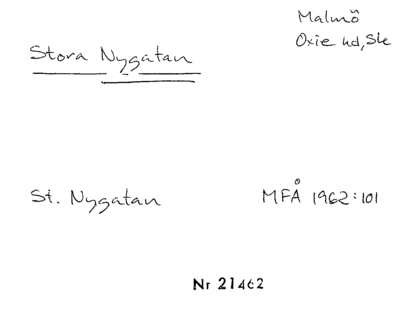 Malmö
Oxie hd, Ske
Stora Nygatan
St. Nygatan MFÅ 1962:101
Nr 21462